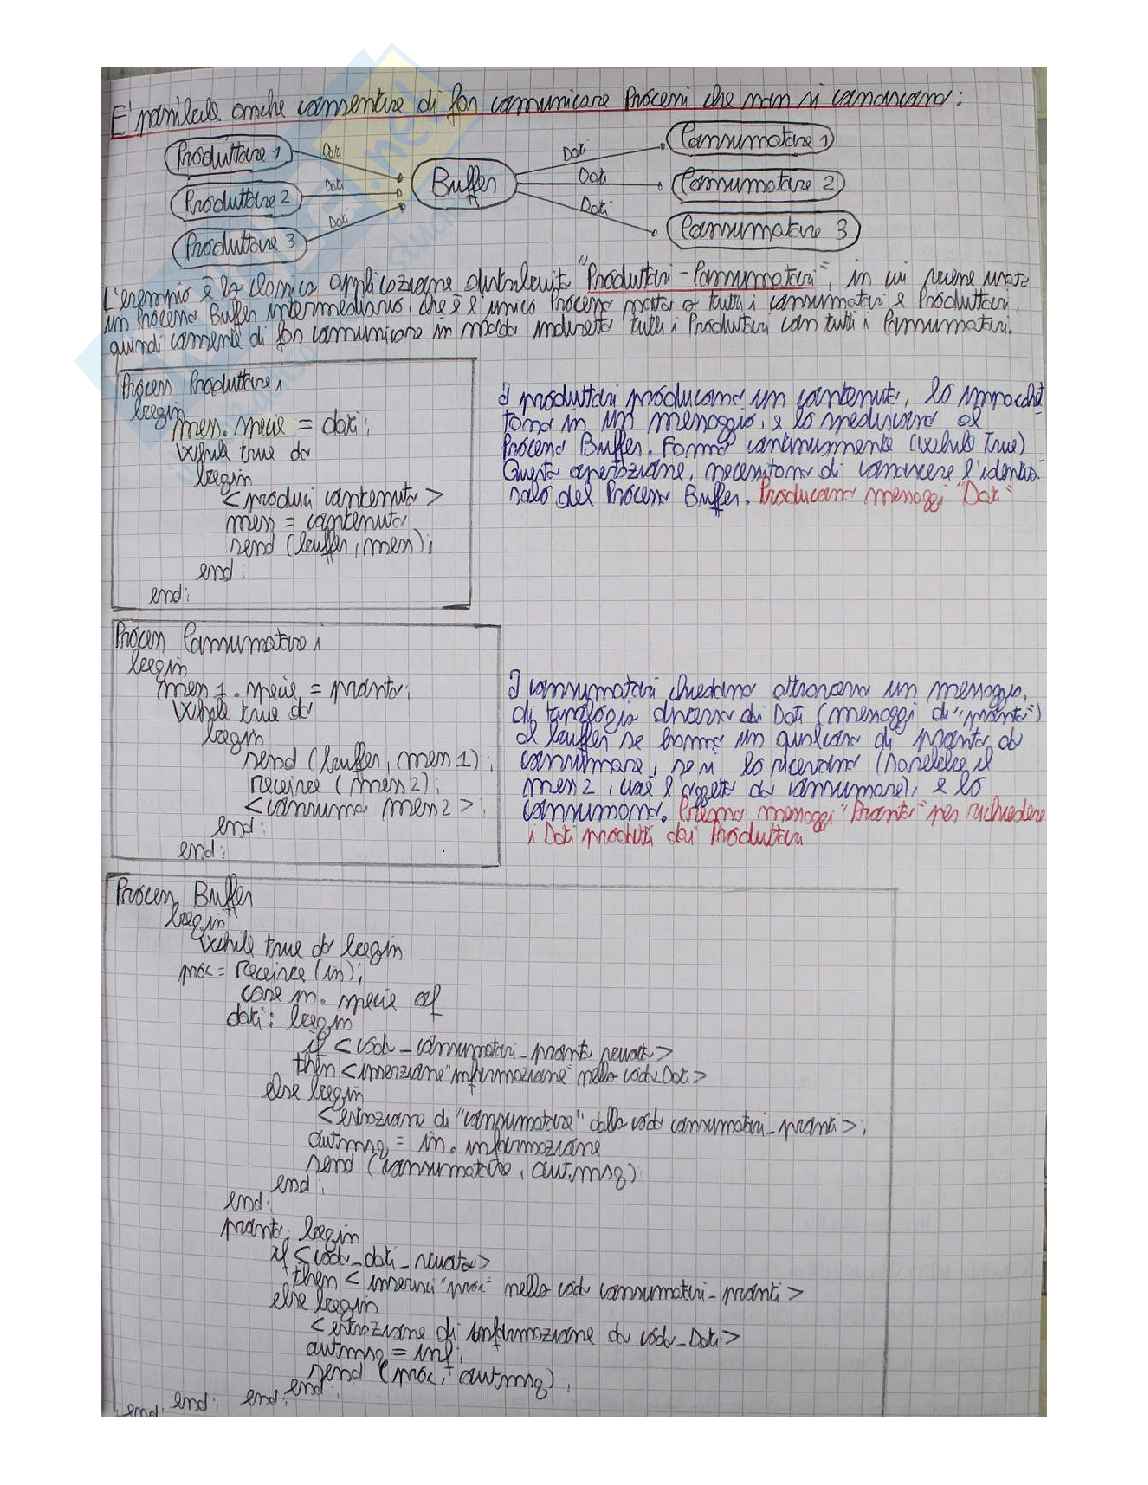 E' possibile anche consentire di far comunicare Processi che non si conoscano:
Produttore 1
Dati
Produttore 2
Dati
Produttore 3
Dati
Buffer
Dati
Consumatore 1
Dati
Consumatore 2
Dati
Consumatore 3
L'esempio è la classica applicazione "Produttori-Consumatori", in cui viene usato
un Processo Buffer intermediario, che è l'unico Processo noto a tutti i consumatori e Produttori
quindi consente di far comunicare in modo indiretto tutti i Produttori con tutti i Consumatori.
Process Produttore i
begin
mess.specie = dati;
while true do
begin
<produci contenuto>
mess = contenuto;
send (buffer, mess);
end;
end;
I produttori producono un contenuto, lo
in un messaggio, e lo spediscono al
Processo Buffer. Fanno continuamente (while true)
Questa operazione, necessitano di conoscere l'identi
del Process Buffer. Producono messaggi "Dati"
Process Consumatore i
begin
mess1.specie = pronto;
while true do
begin
send (buffer, mess1);
receive (mess2);
<consuma mess2>;
end;
end;
I consumatori chiedono attraverso un messaggio,
di tipologia diversa da Dati (messaggi di "pronto")
al buffer se hanno un qualcosa di pronto da
consumare, se sì lo ricevono (sarebbe il
mess2, cioè l'oggetto da consumare), e lo
consumano. messaggi "Pronto" per richiedere
i Dati prodotti dai Produttori
Process Buffer
begin
while true do begin
proc = receive (in);
case in.specie of
dati: begin
if <coda_consumatori_pronti vuota>
then <inserzione "informazione" nella coda Dati>
else begin
<estrazione di "consumatore" dalla coda consumatori_pronti>;
outmsg = in.informazione
send (consumatore, outmsg)
end;
end;
pronto: begin
if <coda_dati_vuota>
then <inserisci "proc" nella coda consumatori_pronti>
else begin
<estrazione di informazione da coda_Dati>
outmsg = inf;
send (proc, outmsg);
end;
end;
end;
end;